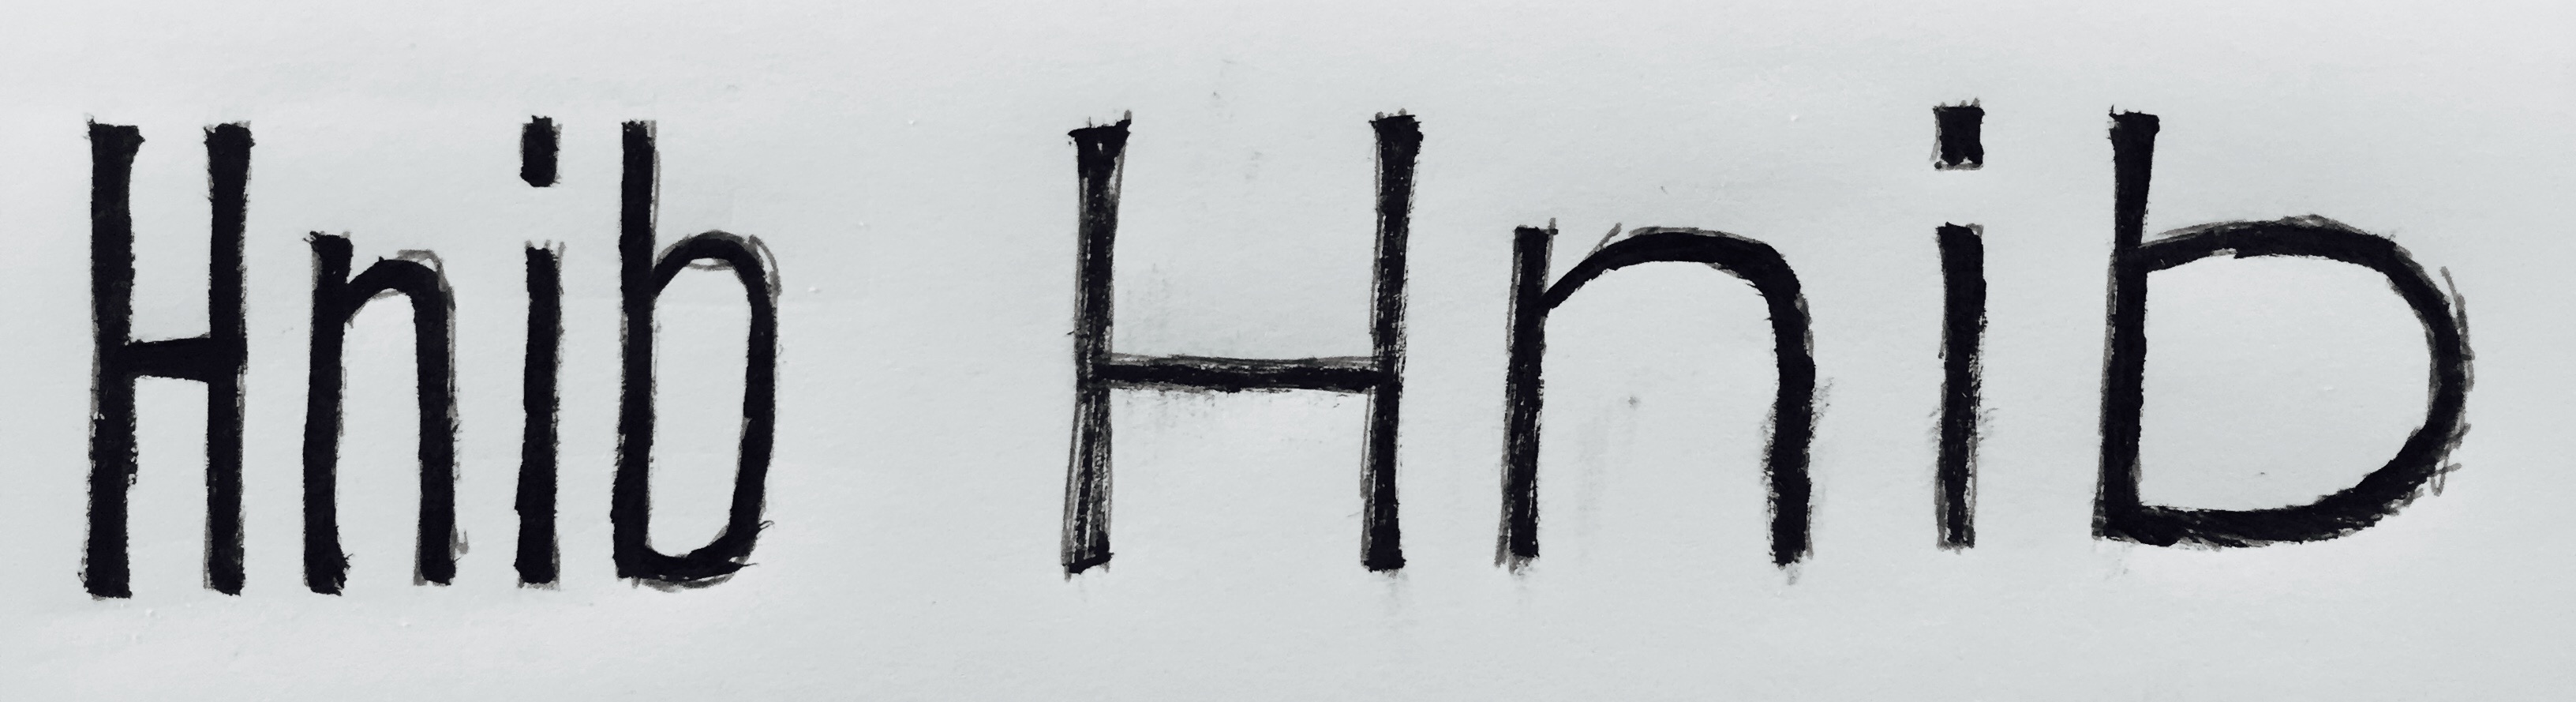 Hnib Hnib